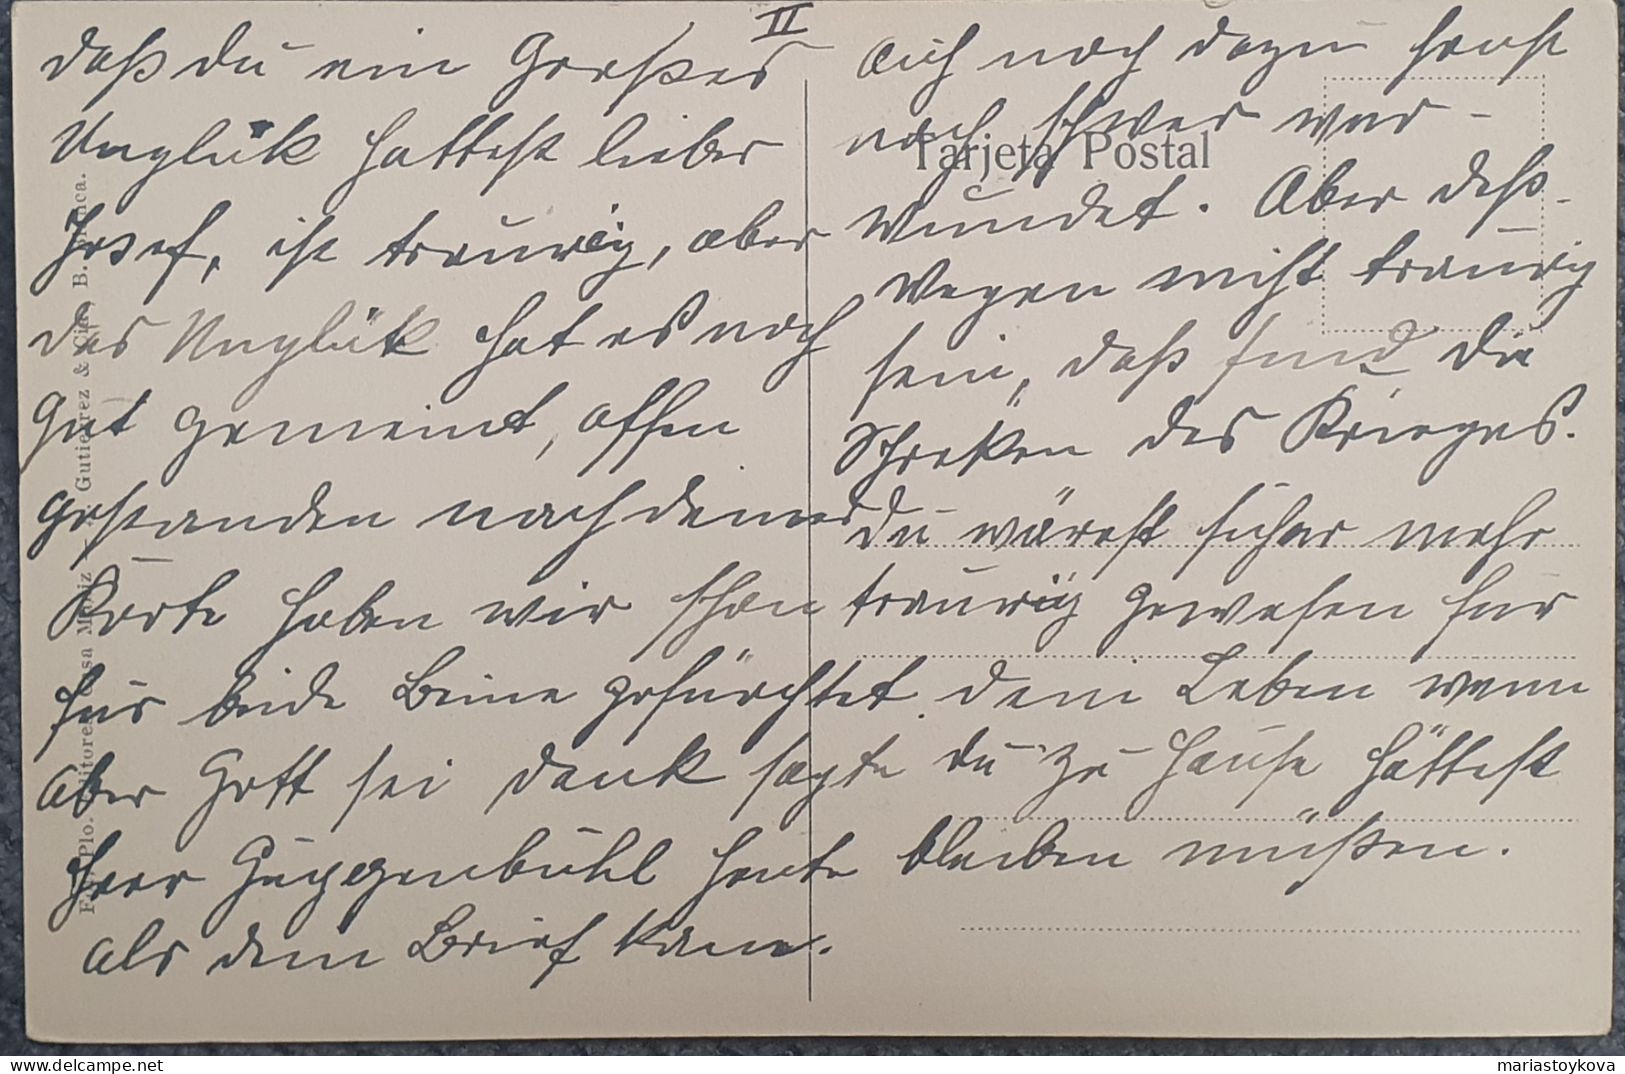 II
daß du ein Großes
Unglük hattest lieber
Josef, ist traurig, aber
das Unglük hat es noch
gut gemeint, offen
gestanden nach deiner
Karte haben wir schon
für beide Beine gefürchtet
aber Gott sei dank sagte
Herr Guggenbühl heute
als dem Brief kam.
dich noch dazu sonst
noch schwer ver-
wundet. Aber deß-
wegen nicht traurig
sein, daß sind die
Schreken des Krieges.
Du wärest sicher mehr
traurig gewesen für
dem Leben wenn
du zu Hause hättest
bleiben müßen.
Tarjeta Postal
Gutierrez & Cia. B. Blanca.
mariastoykova